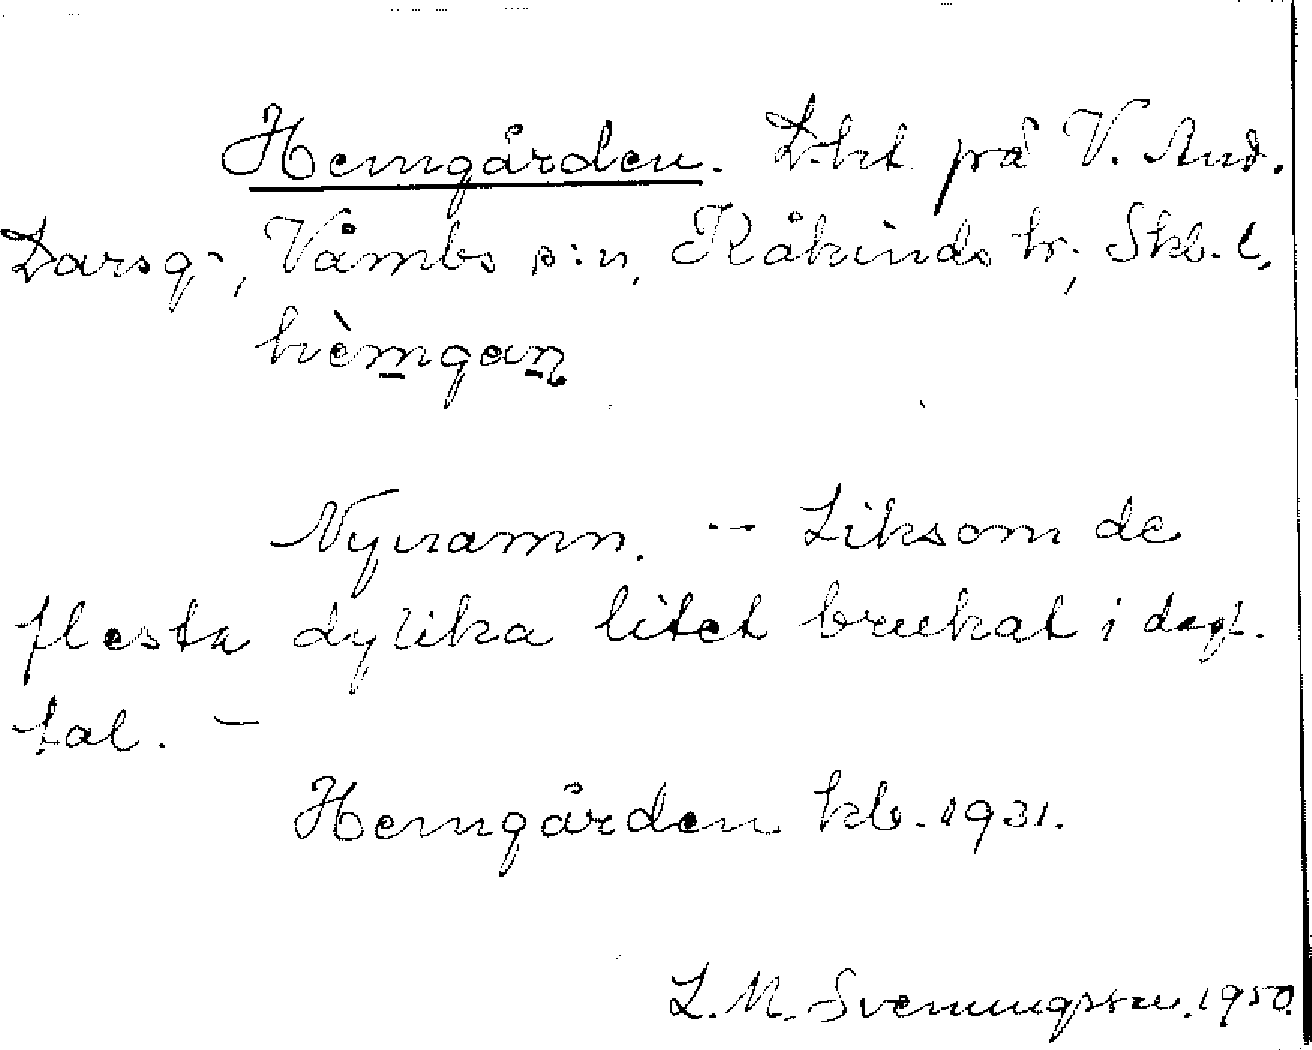 Hemgården. Lht på V. And.
Darsg., Våmbs s:n, Kåkinds hr, Skb. l.
hèmgan
Nynamn. – Liksom de
flesta dylika litet brukat i dagl.
tal. –
Hemgården kb. 1931.
L. M. Svenungsson. 1950.